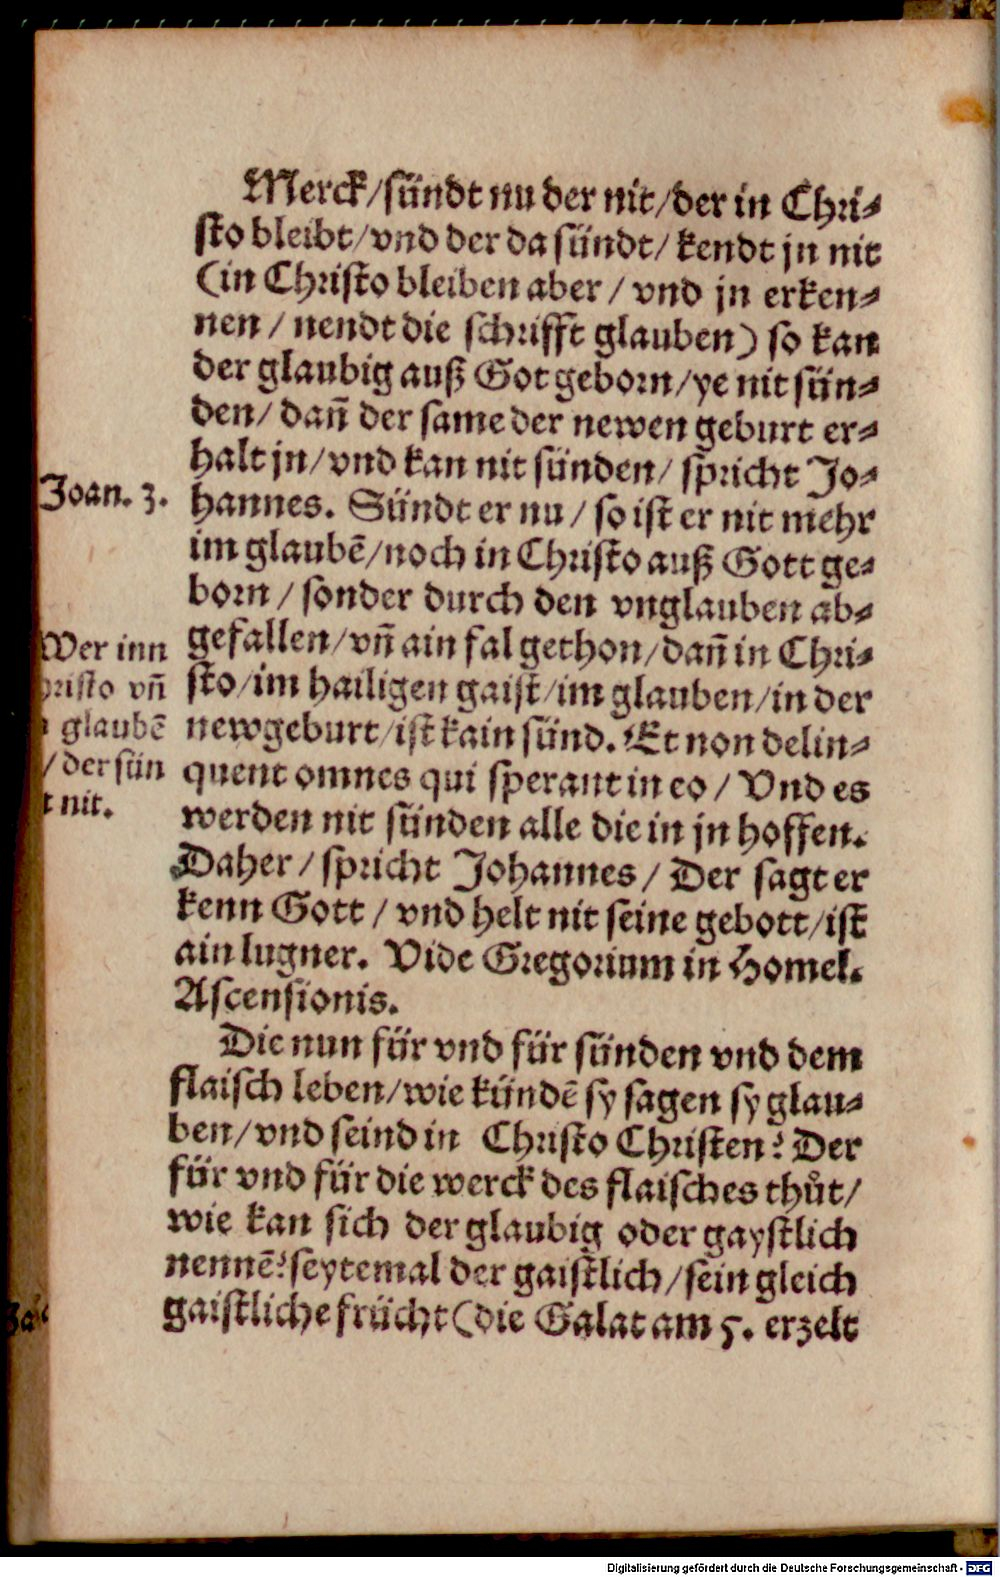 Merck/sündt nu der nit/der in Chri-
sto bleibt/vnd der da sündt/ kendt jn nit
(in Christo bleiben aber / vnd jn erken-
nen / nendt die schrifft glauben) so kan
der glaubig auß Got geborn/ye nit sün-
den/ dañ der same der newen geburt er-
halt jn/vnd kan nit sünden/ spricht Jo-
Joan. 3.
hannes. Sündt er nu / so ist er nit mehr
im glaubē/noch in Christo auß Gott ge-
born / sonder durch den vnglauben ab-
gefallen/vñ ain fal gethon/dañ in Chri-
sto/im hailigen gaist/im glauben/in der
newgeburt/ist kain sünd. Et non delin-
quent omnes qui sperant in eo / Vnd es
werden nit sünden alle die in jn hoffen.
Wer inn
risto vñ
glaubē
/ der sün
t nit.
Daher / spricht Johannes / Der sagt er
kenn Gott / vnd helt nit seine gebott/ist
ain lugner. Vide Gregorium in Homel.
Ascensionis.
Die nun für vnd für sünden vnd dem
flaisch leben/wie kündē sy sagen sy glau-
ben/vnd seind in Christo Christen? Der
für vnd für die werck des flaisches thůt/
wie kan sich der glaubig oder gaystlich
nennē? seytemal der gaistlich/sein gleich
gaistliche frücht (die Galat am 5. erzelt
Digitalisierung gefördert durch die Deutsche Forschungsgemeinschaft - DFG